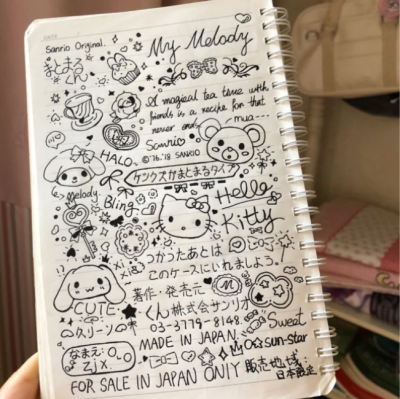 Sanrio Original.
My Melody
まとまる
くん
A magical tea time with
friends is a recipe for that
never end
mua---
Sanrio
HALO
©'76.'18 SANRIO
ケシクズがまとまるタイプ
Melody
Bling
Hello
Kitty
つかったあとは
このケースにいれましょう。
著作・発売元
CUTE
くん株式会社サンリオ
クリーン
03-3779-8148.
Sweet
MADE IN JAPAN.
sun-star
なまえ:
販売地域:
日本限定
FOR SALE IN JAPAN ONLY